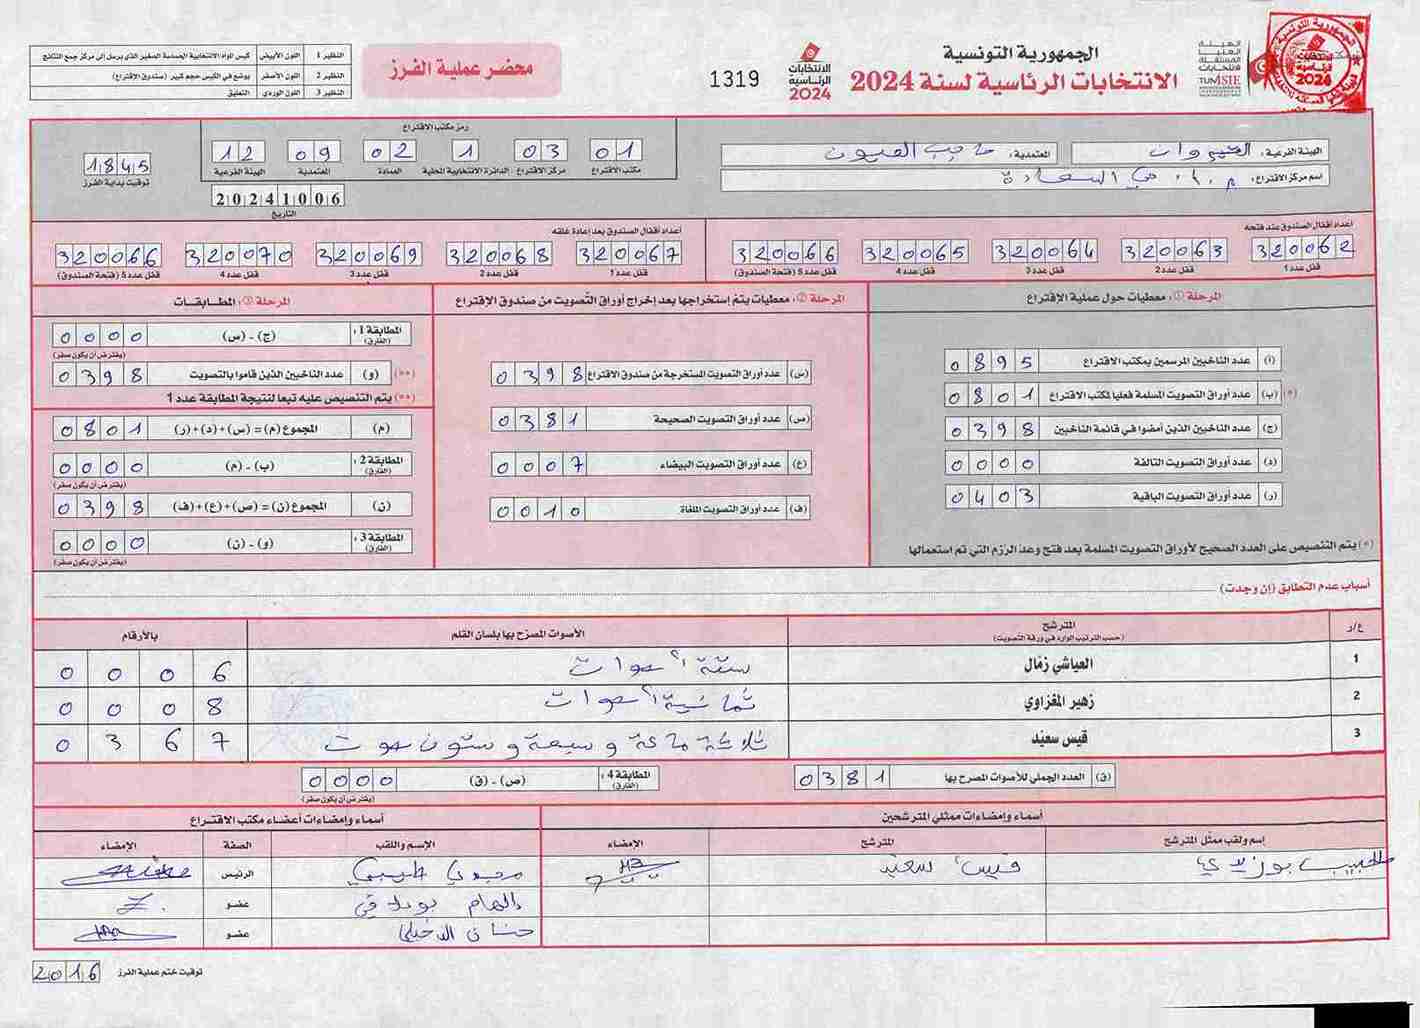 الجمهورية التونسية
الانتخابات الرئاسية لسنة 2024
الهيئة
العليا
المستقلة
للانتخابات
TUNISIE
الانتخابات
الرئاسية
2024
1319
محضر عملية الفرز
النظير 1 اللون الأبيض كيس المواد الانتخابية الحساسة الصغير الذي يرسل إلى مركز جمع النتائج
النظير 2 اللون الأصفر يوضع في الكيس حجم كبير (صندوق الاقتراع)
النظير 3 اللون الوردي التعليق
الهيئة الفرعية: القيروان
المعتمدية: حاجب العيون
اسم مركز الاقتراع: م.إ. حي السعادة
رمز مكتب الاقتراع
01 03 1 02 09 12
مكتب الاقتراع مركز الاقتراع الدائرة الانتخابية المحلية العمادة المعتمدية الهيئة الفرعية
20241006
التاريخ
1845
توقيت بداية الفرز
أعداد أقفال الصندوق عند فتحه
320062 320063 320064 320065 320066
قفل عدد 1 قفل عدد 2 قفل عدد 3 قفل عدد 4 قفل عدد 5 (فتحة الصندوق)
أعداد أقفال الصندوق بعد إعادة غلقه
320067 320068 320069 320070 320066
قفل عدد 1 قفل عدد 2 قفل عدد 3 قفل عدد 4 قفل عدد 5 (فتحة الصندوق)
المرحلة ①: معطيات حول عملية الإقتراع
(أ) عدد الناخبين المرسمين بمكتب الاقتراع 0895
(*) (ب) عدد أوراق التصويت المسلمة فعليا لمكتب الاقتراع 0801
(ج) عدد الناخبين الذين أمضوا في قائمة الناخبين 0398
(د) عدد أوراق التصويت التالفة 0000
(ر) عدد أوراق التصويت الباقية 0403
(*) يتم التنصيص على العدد الصحيح لأوراق التصويت المسلمة بعد فتح وعد الرزم التي تم استعمالها
المرحلة ②: معطيات يتم إستخراجها بعد إخراج أوراق التصويت من صندوق الإقتراع
(س) عدد أوراق التصويت المستخرجة من صندوق الاقتراع 0398
(ص) عدد أوراق التصويت الصحيحة 0381
(ع) عدد أوراق التصويت البيضاء 0007
(ف) عدد أوراق التصويت الملغاة 0010
المرحلة ③: المطابقات
المطابقة 1: (الفارق) (ج) - (س) 0000
(يفترض أن يكون صفر)
(**) (و) عدد الناخبين الذين قاموا بالتصويت 0398
(**) يتم التنصيص عليه تبعا لنتيجة المطابقة عدد 1
(م) المجموع (م) = (س)+(د)+(ر) 0801
المطابقة 2: (الفارق) (ب) - (م) 0000
(يفترض أن يكون صفر)
(ن) المجموع (ن) = (ص)+(ع)+(ف) 0398
المطابقة 3: (الفارق) (و) - (ن) 0000
(يفترض أن يكون صفر)
أسباب عدم التطابق (إن وجدت)
ع/ر المترشح الأصوات المصرح بها بلسان القلم بالأرقام
(حسب الترتيب الوارد في ورقة التصويت)
1 العياشي زمّال ستة أصوات 0006
2 زهير المغزاوي ثمانية أصوات 0008
3 قيس سعيّد ثلاثة مائة وسبعة وستون صوت 0367
(ق) العدد الجملي للأصوات المصرح بها 0381
المطابقة 4: (الفارق) (ص) - (ق) 0000
(يفترض أن يكون صفر)
أسماء وإمضاءات ممثلي المترشحين
إسم ولقب ممثل المترشح المترشح الإمضاء
الحبيب قيس سعيد
أسماء وإمضاءات أعضاء مكتب الاقتراع
الإسم واللقب الصفة الإمضاء
الرئيس
الهام عضو
حنان الدخيلي عضو
توقيت ختم عملية الفرز 2016